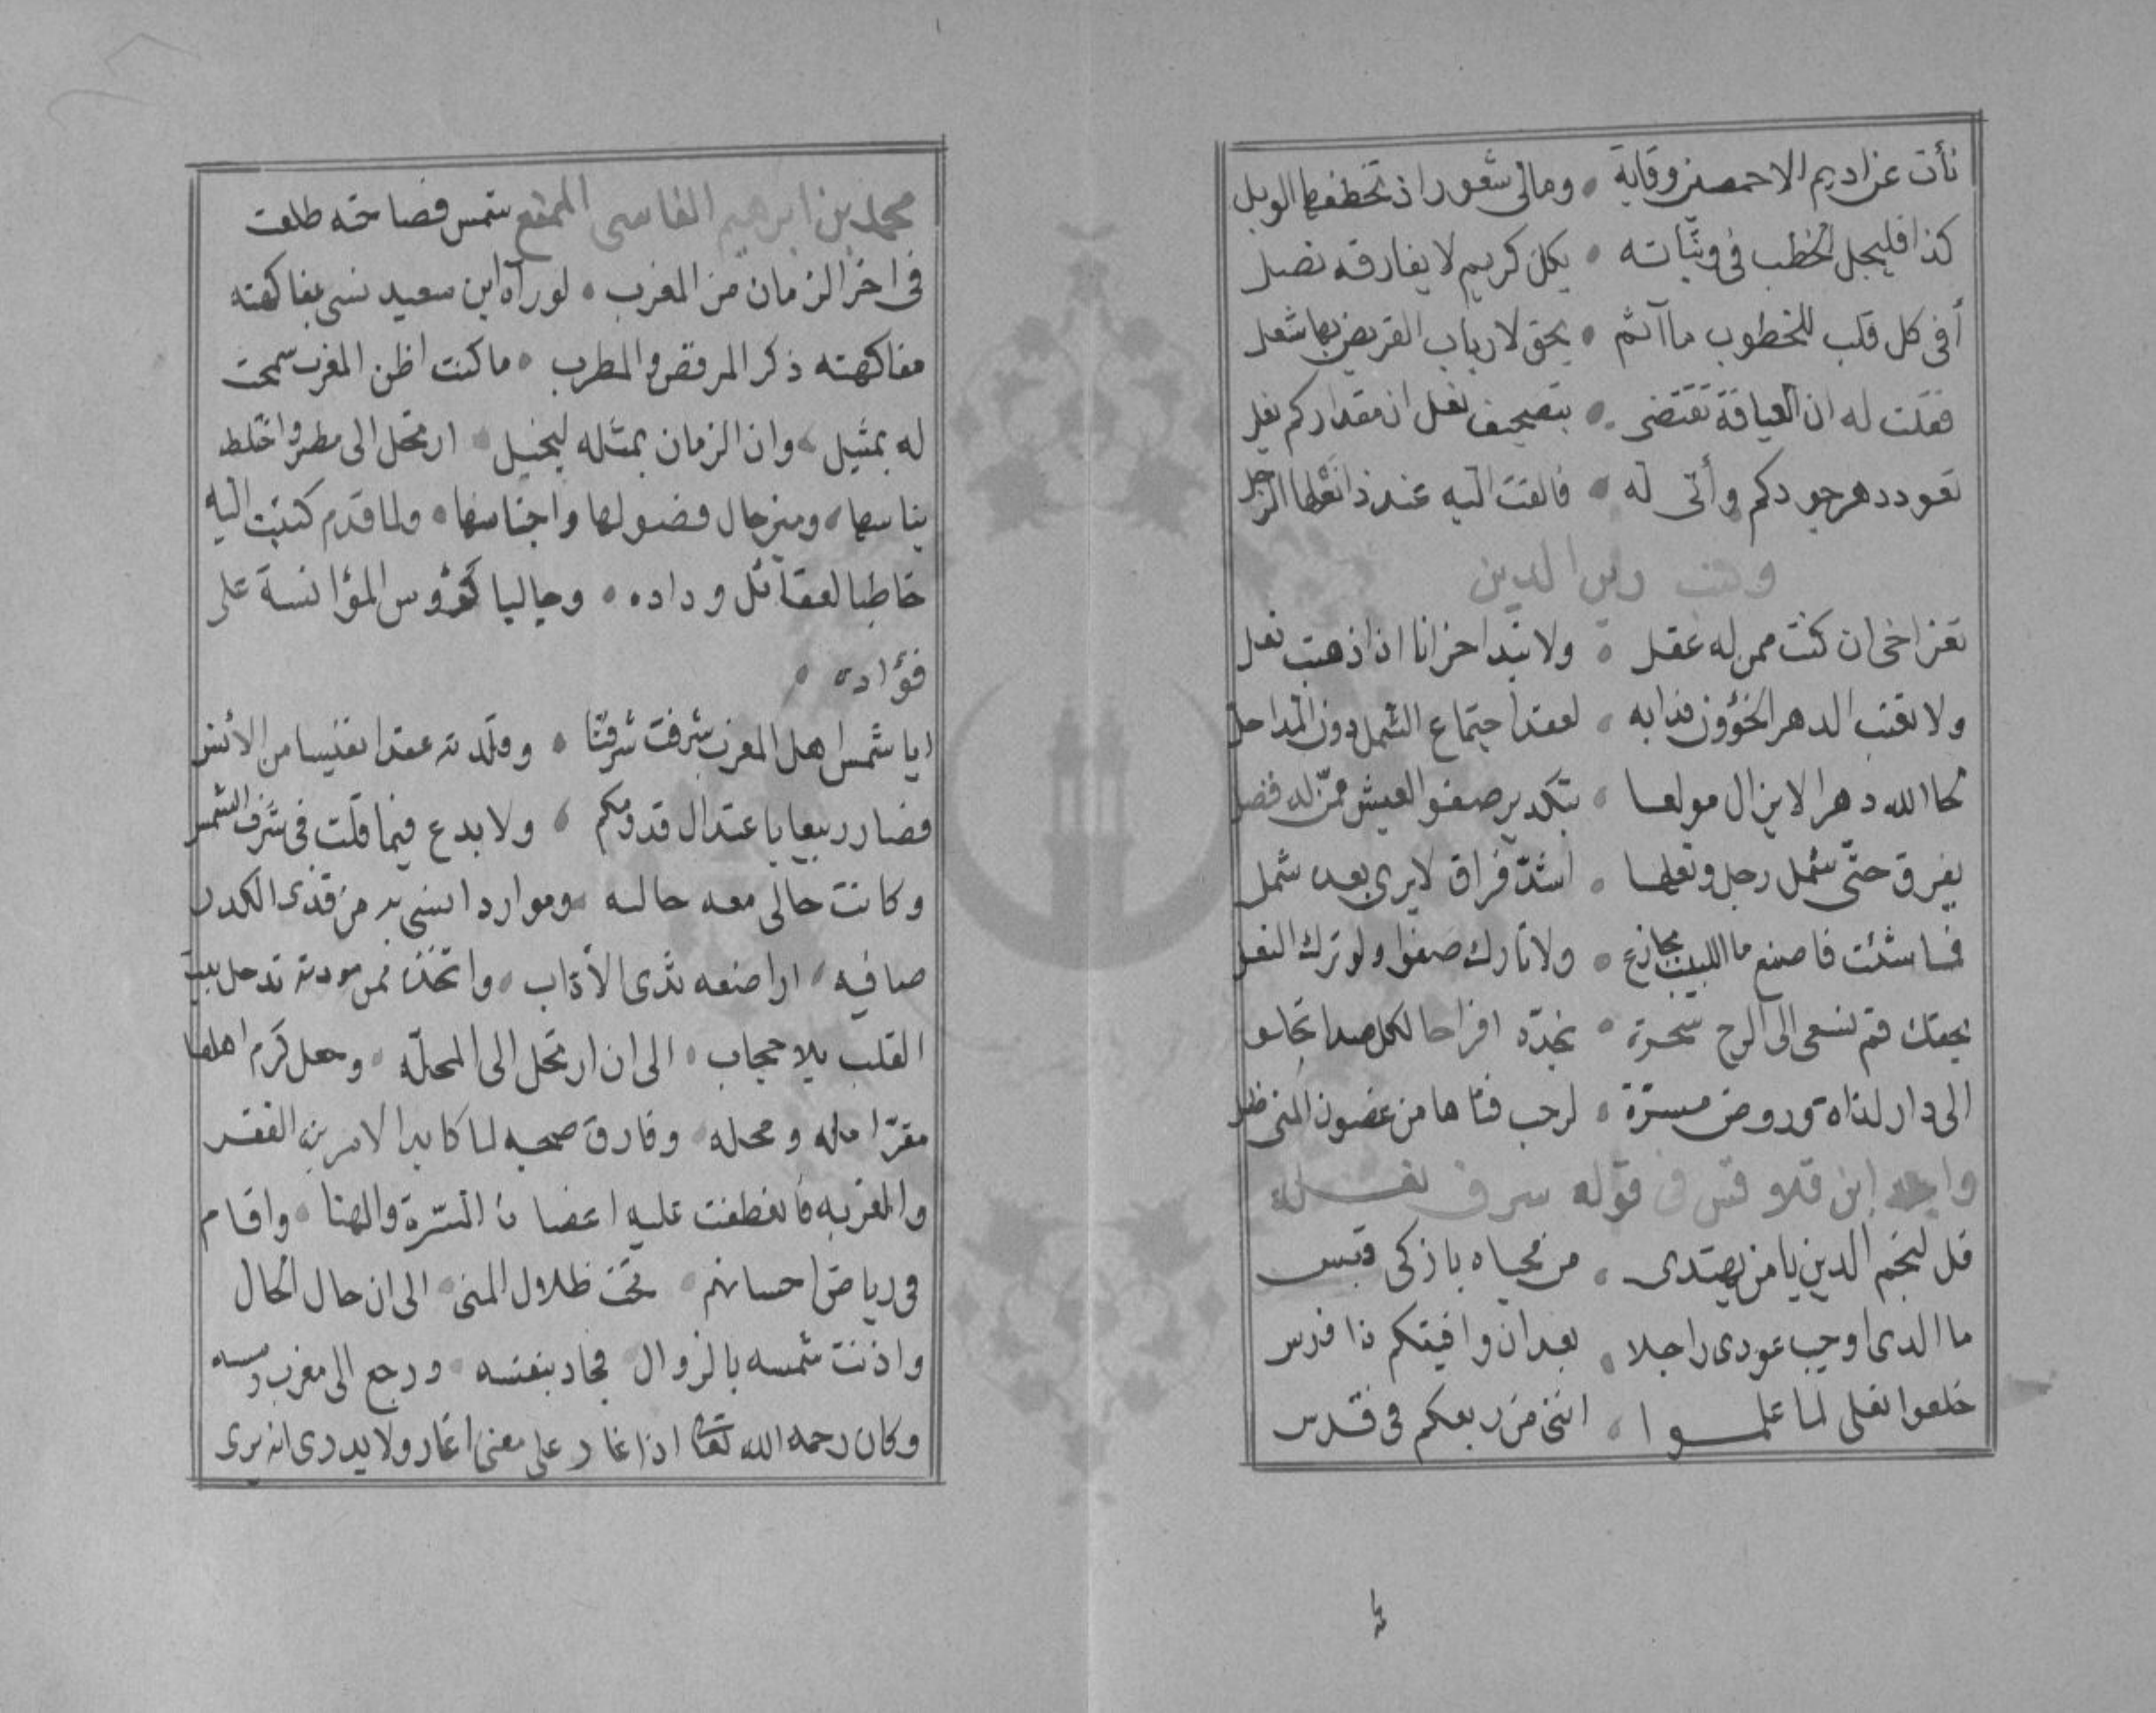 نأت عن اديم الاخمصين وقاية ومالى شعور اذ تخطفها الوبل
كذا فليجل الخطب فى وثباته بكل كريم لا يفارقه نصل
أفى كل قلب للخطوب مآثم بحق لارباب القريض بها شغل
فقلت له ان العيافة تقتضى بتصحيف نعل ان مقداركم يعل
تعود دهر جودكم وأتى له فالقت اليه عند ذا نعلها الرجل
زين الدين
تعز اخى ان كنت ممن له عقل ولا تبد احزانا اذا ذهبت نعل
ولا تعتب الدهر الخؤون فدابه لعقد اجتماع الشمل دون المدا حل
لحا الله دهرا لا يزال مولعا بتكدير صفو العيش ممن له فضل
يفرق حتى شمل رجل ونعلها اشد فراق لا يرى بعده شمل
فما شئت فاصنع ما اللبيب بجازع ولا تارك صفوا ولو ترك النعل
بحقك قم نسعى الى الراح سحرة نجدد افراحا لكل صدا تجلو
الى دار لذات وروض مسرة لرحب فناها من غصون المنى ظل
ابن قلاقس فى قوله سرق نعله
قل لنجم الدين يا من يهتدى من محياه بازكى قبس
ما الذى اوجب عودى راجلا بعد ان وافيتكم ذا فرس
خلعوا نعلى لما علموا اننى من ربعكم فى قدس
محمد بن ابرهيم الفاسى شمس فصاحته طلعت
فى اخر الزمان من المغرب لو رآه ابن سعيد نسى بفاكهته
مفاكهته ذكر المرقص والمطرب ما كنت اظن المغرب سمحت
له بمثيل وان الزمان بمثله لبخيل ارتحل الى مصر واختلط
بناسها وميز حال فصولها واجناسها ولما قدم كتبت اليه
خاطبا لعقائل وداده وجاليا كؤوس المؤانسة على
فؤاده
ايا شمس اهل المغرب شرفت شرقنا وقلدته عقدا نفيسا من الأنس
فصار ربيعا باعتدال قدومكم ولا بدع فيما قلت فى شرف الشمس
وكانت حالى معه حاليه وموارد انسى به من قذى الكدر
صافيه اراضعه ثدى الأداب واتخذت من مودته تدخل بيت
القلب بلا حجاب الى ان ارتحل الى المحله وجعل كرم اهلها
مقرا له ومحله وفارق صحبه لما كابد الامرين الفقر
والغربه فانعطفت عليه اغصان المسرة والهنا واقام
فى رياض احسانهم تحت ظلال المنى الى ان حال الحال
واذنت شمسه بالزوال فجاد بنفسه ورجع الى مغرب رمسه
وكان رحمه الله تعالى اذا غار على معنى اغار ولا يدرى انه يرى